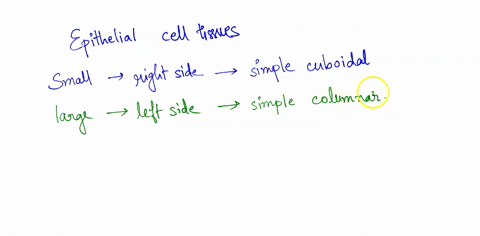 Epithelial cell tissues
Small → right side → simple cuboidal
large → left side → simple columnar.